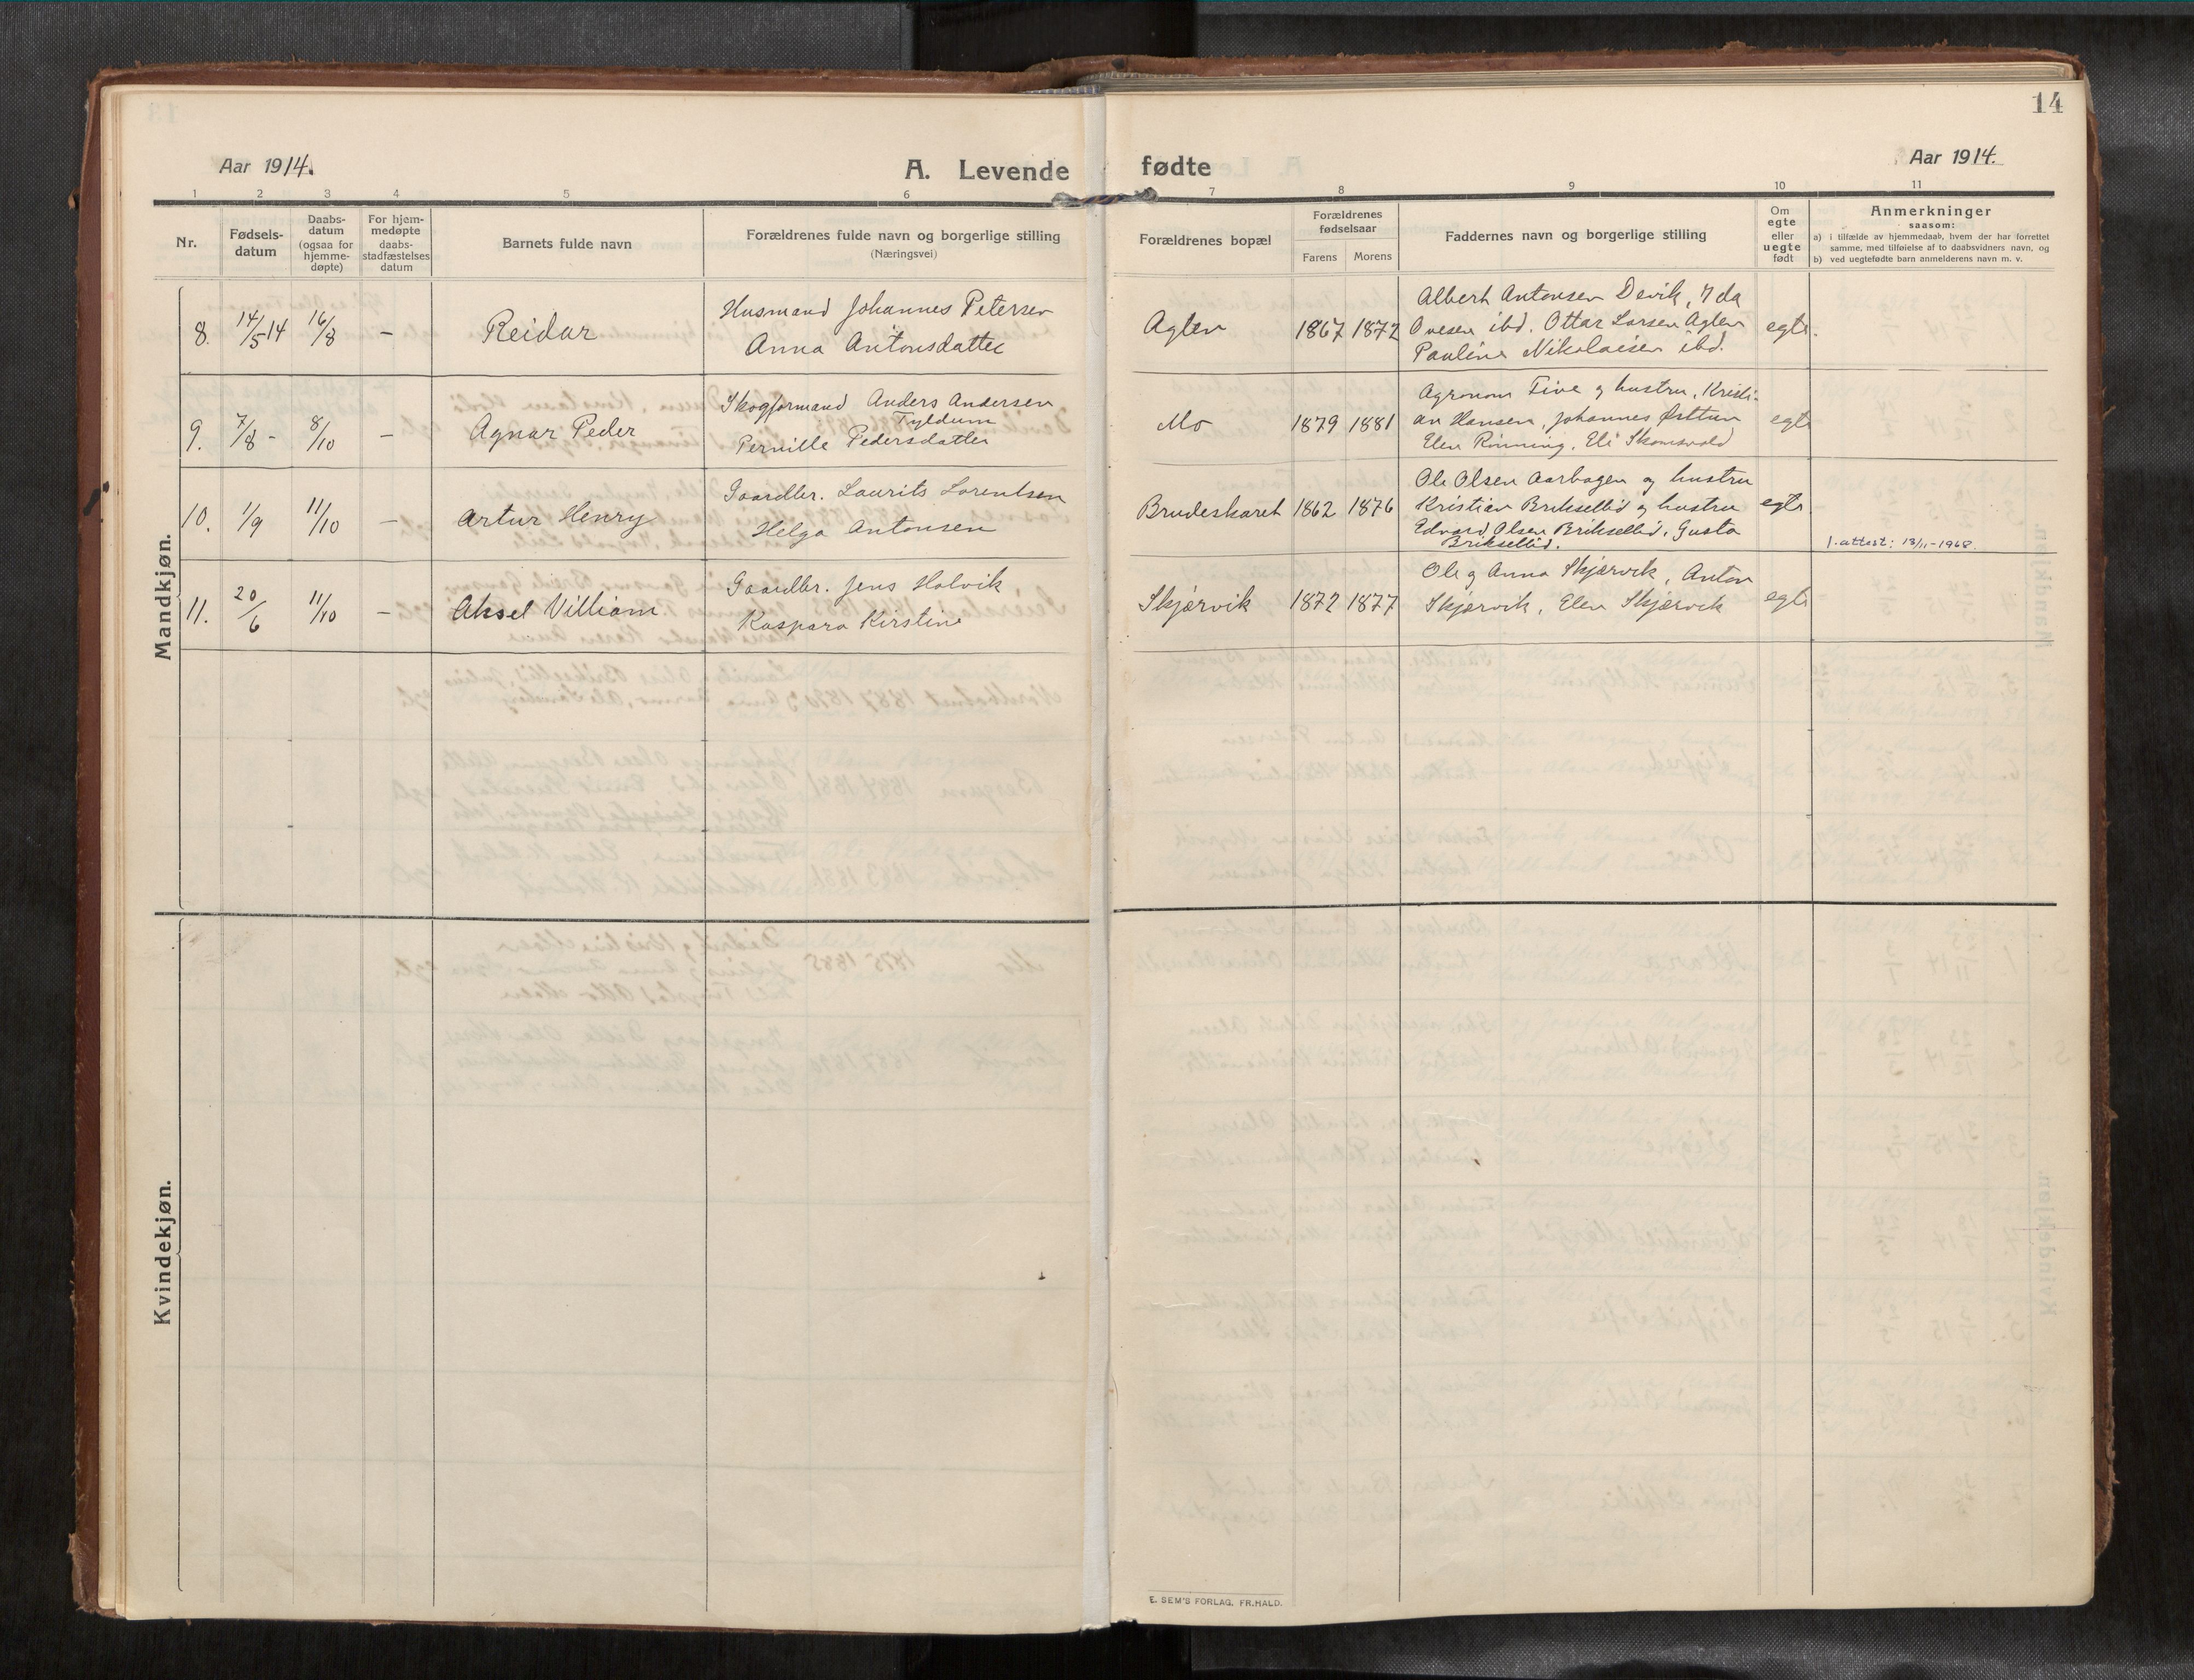 14
Aar 1914.
A. Levende
fødte
Aar 1914.
1 2 3 4 5 6 7 8 9 10 11
Nr.
Fødsels-
datum
Daabs-
datum
(ogsaa for
hjemme-
døpte)
For hjem-
medøpte
daabs-
stadfæstelses
datum
Barnets fulde navn
Forældrenes fulde navn og borgerlige stilling
(Næringsvei)
Forældrenes bopæl
Forældrenes
fødselsaar
Farens Morens
Faddernes navn og borgerlige stilling
Om
egte
eller
uegte
født
Anmerkninger
saasom:
a) i tilfælde av hjemmedaab, hvem der har forrettet
samme, med tilføielse af to daabsvidners navn, og
b) ved uegtefødte barn anmelderens navn m. v.
Mandkjøn.
8. 14/5 14 16/8 – Reidar
Husmand Johannes Petersen
Anna Antonsdatter
Aglen 1867 1872
Albert Antonsen Devik, Ida
Ovesen ibd. Ottar Larsen Aglen
Pauline Nikolaisen ibd.
egte.
9. 7/8 - 8/10 – Agnar Peder
Skogformand Anders Andersen
Tyldum
Pernille Pedersdatter
Mo 1879 1881
Agronom Five og hustru, Kristi-
an Hansen, Johannes Østtun
Elen Rønning, Eli
egte
10. 1/9 11/10 – Artur Henry
Gaardbr. Laurits Lorentsen
Helga Antonsen
Brudeskaret 1862 1876
Ole Olsen Aarbogen og hustru
Kristian Brikselbid og hustru
Edvard Olsen Brikselbid, Gusta
Brikselbid.
egte
1. attest: 13/11-1968.
11. 20/6 11/10 – Aksel Villiam.
Gaardbr. Jens Holvik
Kaspara Kirstine
Skjærvik 1872 1877
Ole og Anna Skjærvik, Anton
Skjærvik, Elen Skjærvik
egte
Kvindekjøn.
E. SEM'S FORLAG, FR.HALD.